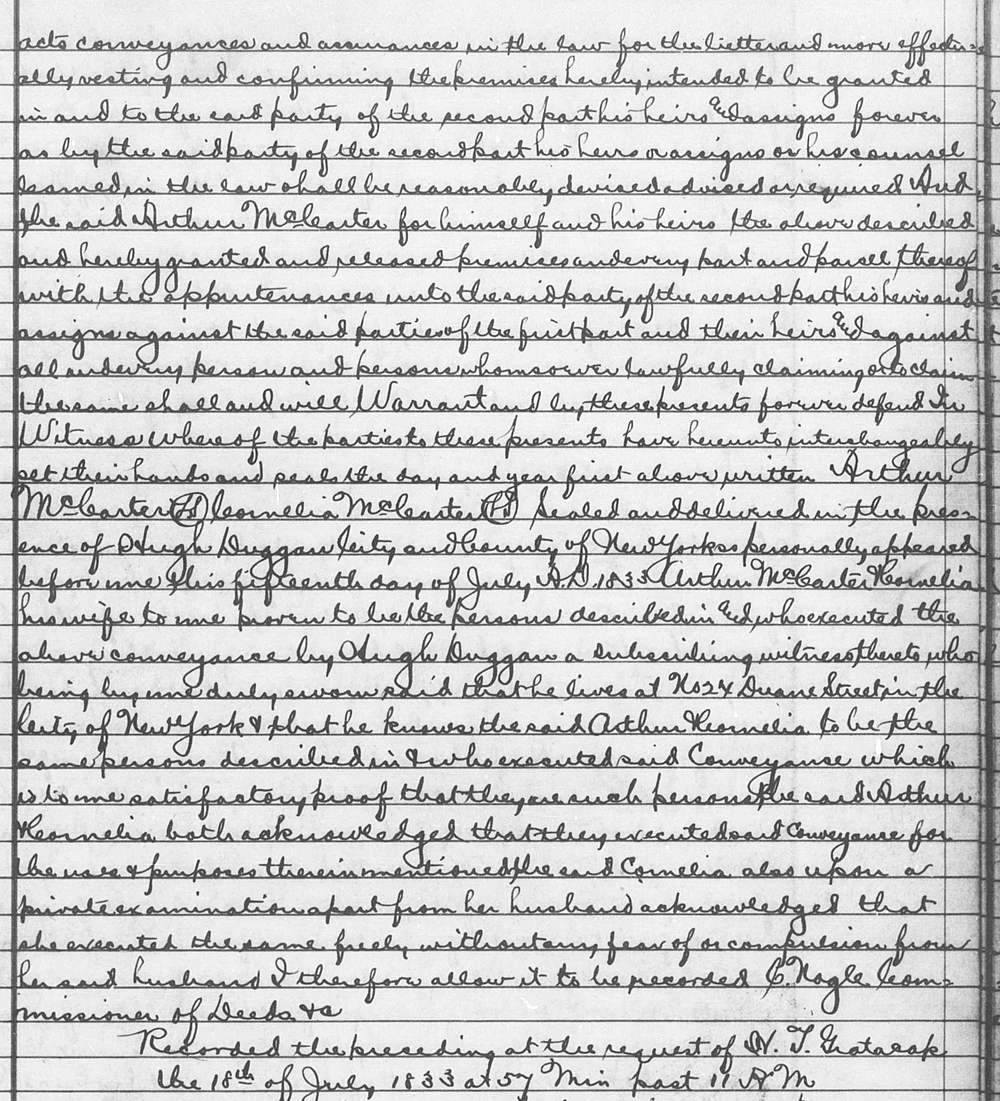 acts conveyances and assurances in the law for the better and more effectu=
ally vesting and confirming the premises hereby intended to be granted
in and to the said party of the second part his heirs and assigns forever
as by the said party of the second part his heirs or assigns or his counsel
learned in the law shall be reasonably devised advised or required And
the said Arthur McCarter for himself and his heirs the above described
and hereby granted and released premises and every part and parcell thereof
with the appurtenances unto the said party of the second part his heirs and
assigns against the said parties of the first part and their heirs and against
all and every person and persons whomsoever lawfully claiming or to claim
the same shall and will Warrant and by these presents forever defend In
Witness whereof the parties to these presents have hereunto interchangeably
set their hands and seals the day and year first above written Arthur
McCarter (LS) Cornelia McCarter (LS) Sealed and delivered in the pres=
ence of Hugh Duggan City and County of New York ss personally appeared
before me this fifteenth day of July A.D. 1833 Arthur McCarter & Cornelia
his wife to me proven to be the persons described in and who executed the
above conveyance by Hugh Duggan a subscribing witness thereto who
being by me duly sworn said that he lives at No 24 Duane Street in the
City of New York & that he knows the said Arthur & Cornelia to be the
same persons described in & who executed said Conveyance which
is to me satisfactory proof that they are such persons the said Arthur
& Cornelia both acknowledged that they executed said Conveyance for
the uses & purposes therein mentioned the said Cornelia also upon a
private examination apart from her husband acknowledged that
she executed the same freely without any fear of or compulsion from
her said husband I therefore allow it to be recorded C. Nagle Com=
missioner of Deeds &c
Recorded the preceding at the request of W. T. Gratacap
the 18th of July 1833 at 57 Min past 11 A M